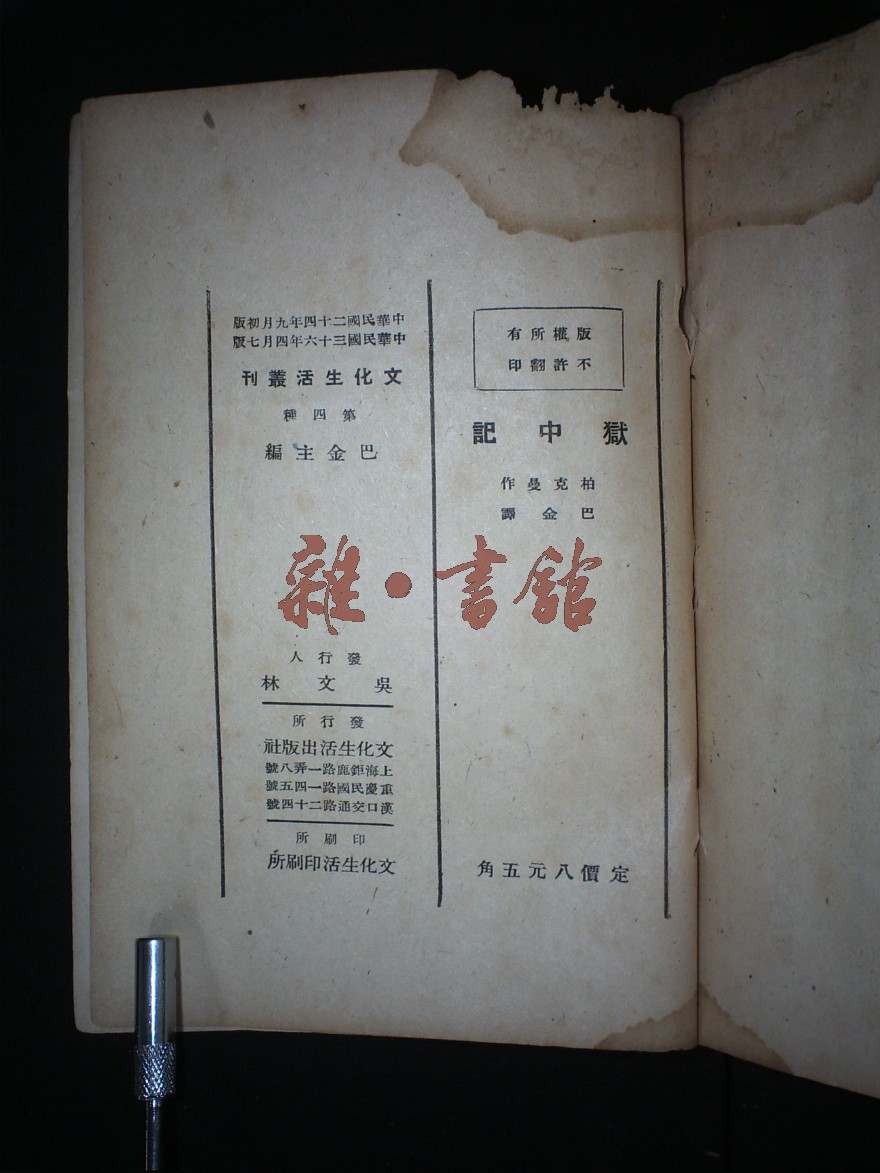 版權所有
不許翻印
獄中記
柏克曼作
巴金譯
定價八元五角
中華民國二十四年九月初版
中華民國三十六年四月七版
文化生活叢刊
第四種
巴金主編
發行人
吳文林
發行所
文化生活出版社
上海鉅鹿路一弄八號
重慶民國路一四五號
漢口交通路二十四號
印刷所
文化生活印刷所
雜·書館